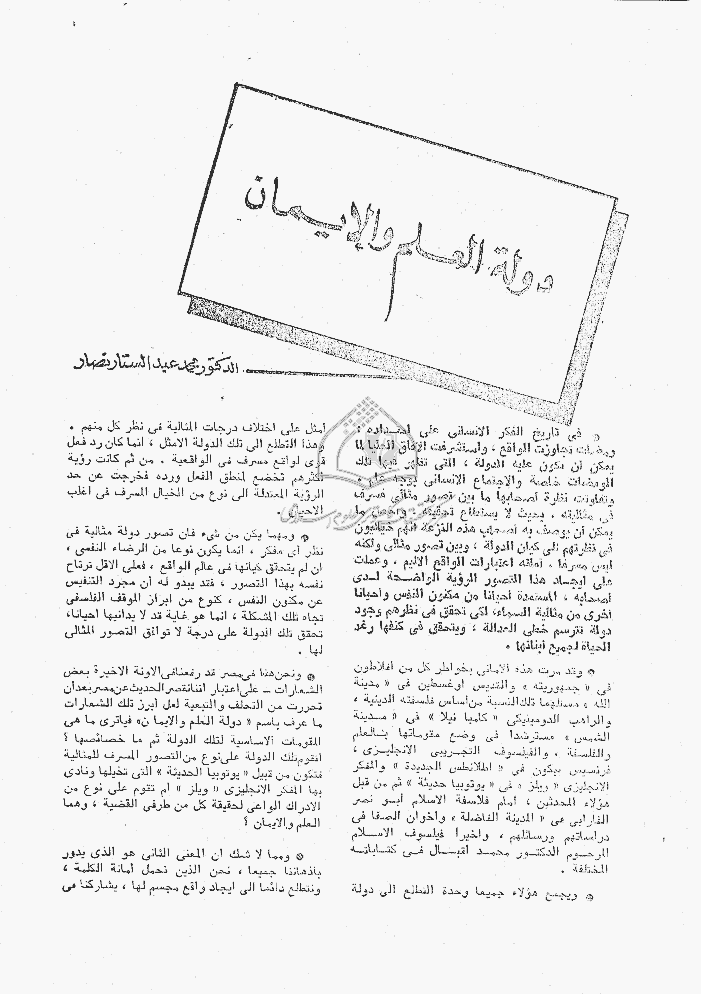 دولة العلم والإيمان
الدكتور محمد عبد الستار نصار
● في تاريخ الفكر الانساني على امتداده :
ومضات تجاوزت الواقع ، واستشرفت الآفاق العليا لما
يمكن أن تكون عليه الدولة ، التي تظهر فيها تلك
الومضات خاصة والاجتماع الانساني بوجه عام .
وتفاوتت نظرة أصحابها ما بين تصور مثالي مسرف
في مثاليته ، بحيث لا يستطاع تحقيقه ، وأخص ما
يمكن أن يوصف به أصحاب هذه النزعة أنهم خياليون
في نظرتهم الى كيان الدولة ، وبين تصور مثالي ولكنه
ليس مسرفا ، أملته اعتبارات الواقع الأليم ، وعملت
على ايجاد هذا التصور الرؤية الواضحة لدى
أصحابه ، المستمدة أحيانا من مكنون النفس وأحيانا
أخرى من مثالية السماء، لكي تحقق في نظرهم وجود
دولة تترسم خطى العدالة ، ويتحقق في كنفها رغد
الحياة لجميع أبنائها .
● وقد مرت هذه الأماني بخواطر كل من أفلاطون
في « جمهوريته » والقديس أوغسطين في « مدينة
الله » مستلهما تلك النسبة من أساس فلسفته الدينية ،
والراهب الدومينيكي « كامبا نيلا » في « مدينة
الشمس » مسترشدا في وضع مقوماتها بالعلم
والفلسفة ، والفيلسوف التجريبي الانجليزي ،
فرنسيس بيكون في « أطلانطس الجديدة » والمفكر
الانجليزي « ويلز » في « يوتوبيا حديثة » ثم من قبل
هؤلاء المحدثين ، امام فلاسفة الاسلام أبو نصر
الفارابي في « المدينة الفاضلة » واخوان الصفا في
دراساتهم ورسائلهم ، وأخيرا فيلسوف الاسلام
المرحوم الدكتور محمد اقبال في كتاباته
المختلفة .
● ويجمع هؤلاء جميعا وحدة التطلع الى دولة
أمثل على اختلاف درجات المثالية في نظر كل منهم .
وهذا التطلع الى تلك الدولة الأمثل ، انما كان رد فعل
قوي لواقع مسرف في الواقعية . من ثم كانت رؤية
أكثرهم تخضع لمنطق الفعل ورده فخرجت عن حد
الرؤية المعتدلة الى نوع من الخيال المسرف في أغلب
الأحيان .
● ومهما يكن من شيء فان تصور دولة مثالية في
نظر أي مفكر ، انما يكون نوعا من الرضاء النفسي ،
ان لم يتحقق كيانها في عالم الواقع ، فعلى الأقل ترتاح
نفسه بهذا التصور ، فقد يبدو له أن مجرد التنفيس
عن مكنون النفس ، كنوع من ابراز الموقف الفلسفي
تجاه تلك المشكلة ، انما هو غاية قد لا يدانيها أحيانا،
تحقق تلك الدولة على درجة لا توافق التصور المثالي
لها .
● ونحن هنا في مصر قد رفعنا في الآونة الأخيرة بعض
الشعارات - على اعتبار أننا نقصر الحديث عن مصر بعد أن
تحررت من التخلف والتبعية لعل أبرز تلك الشعارات
ما عرف باسم « دولة العلم والايمان » فياترى ما هي
المقومات الأساسية لتلك الدولة ثم ما خصائصها ؟
أتقوم تلك الدولة على نوع من التصور المسرف للمثالية
فتكون من قبيل « يوتوبيا الحديثة » التي تخيلها ونادى
بها المفكر الانجليزي « ويلز » أم تقوم على نوع من
الادراك الواعي لحقيقة كل من طرفي القضية ، وهما
العلم والايمان ؟
● ومما لا شك أن المعنى الثاني هو الذي يدور
بأذهاننا جميعا ، نحن الذين نحمل أمانة الكلمة ،
ونتطلع دائما الى ايجاد واقع مجسم لها ، يشاركنا في